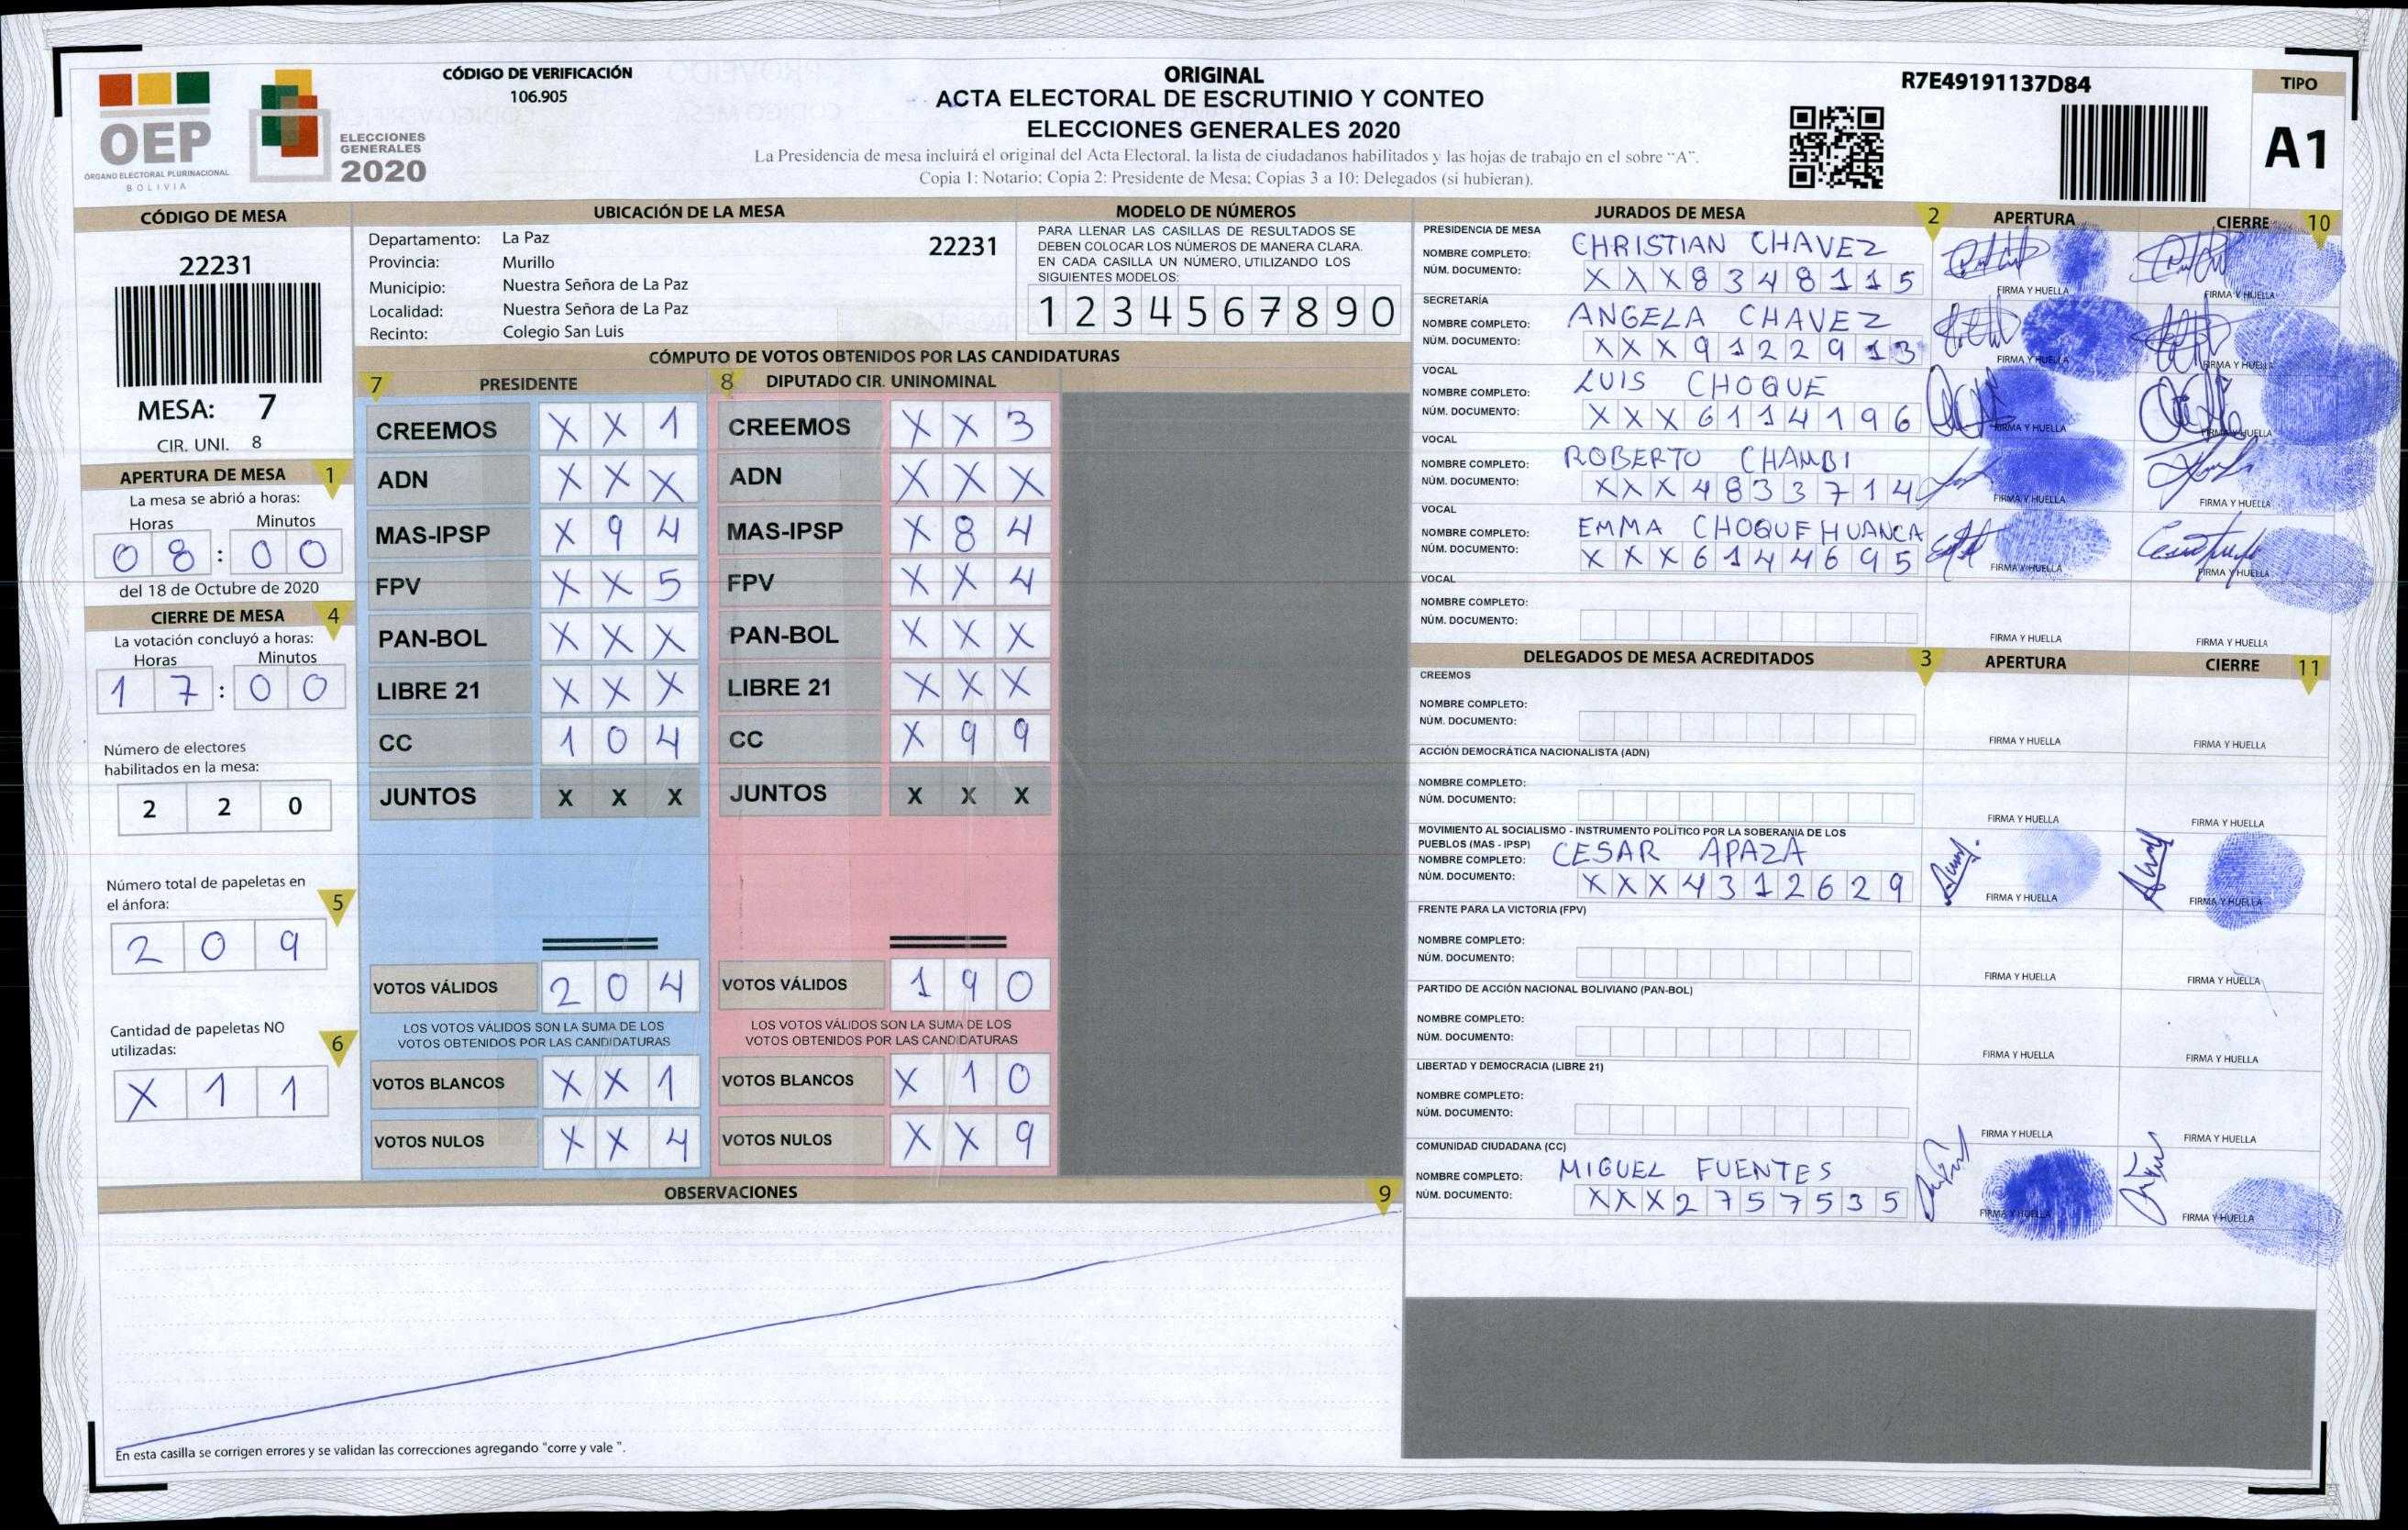 CÓDIGO DE VERIFICACIÓN
106.905
OEP
ÓRGANO ELECTORAL PLURINACIONAL
BOLIVIA
ELECCIONES
GENERALES
2020
ORIGINAL
ACTA ELECTORAL DE ESCRUTINIO Y CONTEO
ELECCIONES GENERALES 2020
La Presidencia de mesa incluirá el original del Acta Electoral, la lista de ciudadanos habilitados y las hojas de trabajo en el sobre "A".
Copia 1: Notario; Copia 2: Presidente de Mesa; Copias 3 a 10: Delegados (si hubieran).
R7E49191137D84
TIPO
A1
CÓDIGO DE MESA
22231
MESA: 7
CIR. UNI. 8
APERTURA DE MESA 1
La mesa se abrió a horas:
Horas Minutos
08:00
del 18 de Octubre de 2020
CIERRE DE MESA 4
La votación concluyó a horas:
Horas Minutos
17:00
Número de electores
habilitados en la mesa:
2 2 0
Número total de papeletas en
el ánfora: 5
2 0 9
Cantidad de papeletas NO
utilizadas: 6
X 1 1
UBICACIÓN DE LA MESA
Departamento: La Paz 22231
Provincia: Murillo
Municipio: Nuestra Señora de La Paz
Localidad: Nuestra Señora de La Paz
Recinto: Colegio San Luis
MODELO DE NÚMEROS
PARA LLENAR LAS CASILLAS DE RESULTADOS SE
DEBEN COLOCAR LOS NÚMEROS DE MANERA CLARA.
EN CADA CASILLA UN NÚMERO, UTILIZANDO LOS
SIGUIENTES MODELOS:
1 2 3 4 5 6 7 8 9 0
CÓMPUTO DE VOTOS OBTENIDOS POR LAS CANDIDATURAS
7 PRESIDENTE 8 DIPUTADO CIR. UNINOMINAL
CREEMOS X X 1 CREEMOS X X 3
ADN X X X ADN X X X
MAS-IPSP X 9 4 MAS-IPSP X 8 4
FPV X X 5 FPV X X 4
PAN-BOL X X X PAN-BOL X X X
LIBRE 21 X X X LIBRE 21 X X X
CC 1 0 4 CC X 9 9
JUNTOS X X X JUNTOS X X X
VOTOS VÁLIDOS 2 0 4 VOTOS VÁLIDOS 1 9 0
LOS VOTOS VÁLIDOS SON LA SUMA DE LOS
VOTOS OBTENIDOS POR LAS CANDIDATURAS
LOS VOTOS VÁLIDOS SON LA SUMA DE LOS
VOTOS OBTENIDOS POR LAS CANDIDATURAS
VOTOS BLANCOS X X 1 VOTOS BLANCOS X 1 0
VOTOS NULOS X X 4 VOTOS NULOS X X 9
OBSERVACIONES 9
En esta casilla se corrigen errores y se validan las correcciones agregando "corre y vale ".
JURADOS DE MESA 2 APERTURA CIERRE 10
PRESIDENCIA DE MESA
NOMBRE COMPLETO: CHRISTIAN CHAVEZ
NÚM. DOCUMENTO: X X X 8 3 4 8 1 1 5
FIRMA Y HUELLA FIRMA Y HUELLA
SECRETARÍA
NOMBRE COMPLETO: ANGELA CHAVEZ
NÚM. DOCUMENTO: X X X 9 1 2 2 9 1 3
FIRMA Y HUELLA FIRMA Y HUELLA
VOCAL
NOMBRE COMPLETO: LUIS CHOQUE
NÚM. DOCUMENTO: X X X 6 1 1 4 1 9 6
FIRMA Y HUELLA FIRMA Y HUELLA
VOCAL
NOMBRE COMPLETO: ROBERTO CHAMBI
NÚM. DOCUMENTO: X X X 4 8 3 3 7 1 4
FIRMA Y HUELLA FIRMA Y HUELLA
VOCAL
NOMBRE COMPLETO: EMMA CHOQUEHUANCA
NÚM. DOCUMENTO: X X X 6 1 4 4 6 9 5
FIRMA Y HUELLA FIRMA Y HUELLA
VOCAL
NOMBRE COMPLETO:
NÚM. DOCUMENTO:
FIRMA Y HUELLA FIRMA Y HUELLA
DELEGADOS DE MESA ACREDITADOS 3 APERTURA CIERRE 11
CREEMOS
NOMBRE COMPLETO:
NÚM. DOCUMENTO:
FIRMA Y HUELLA FIRMA Y HUELLA
ACCIÓN DEMOCRÁTICA NACIONALISTA (ADN)
NOMBRE COMPLETO:
NÚM. DOCUMENTO:
FIRMA Y HUELLA FIRMA Y HUELLA
MOVIMIENTO AL SOCIALISMO - INSTRUMENTO POLÍTICO POR LA SOBERANIA DE LOS
PUEBLOS (MAS - IPSP)
NOMBRE COMPLETO: CESAR APAZA
NÚM. DOCUMENTO: X X X 4 3 1 2 6 2 9
FIRMA Y HUELLA FIRMA Y HUELLA
FRENTE PARA LA VICTORIA (FPV)
NOMBRE COMPLETO:
NÚM. DOCUMENTO:
FIRMA Y HUELLA FIRMA Y HUELLA
PARTIDO DE ACCIÓN NACIONAL BOLIVIANO (PAN-BOL)
NOMBRE COMPLETO:
NÚM. DOCUMENTO:
FIRMA Y HUELLA FIRMA Y HUELLA
LIBERTAD Y DEMOCRACIA (LIBRE 21)
NOMBRE COMPLETO:
NÚM. DOCUMENTO:
FIRMA Y HUELLA FIRMA Y HUELLA
COMUNIDAD CIUDADANA (CC)
NOMBRE COMPLETO: MIGUEL FUENTES
NÚM. DOCUMENTO: X X X 2 7 5 7 5 3 5
FIRMA Y HUELLA FIRMA Y HUELLA